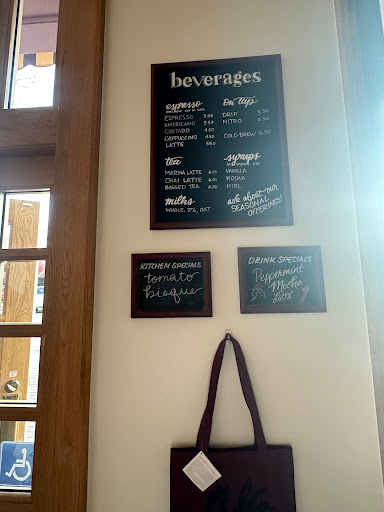 beverages
espresso
ESPRESSO 3.50
AMERICANO 3.50
CORTADO 4.00
CAPPUCCINO 4.50
LATTE 5.00
On Tap
DRIP 3.50
NITRO 4.50
COLD BREW 6.50
tea
MATCHA LATTE 6.00
CHAI LATTE 6.00
BAGGED TEA 4.00
syrups
VANILLA
MOCHA
MIEL
milks
WHOLE, 2%, OAT
ask about our
SEASONAL
OFFERING!
KITCHEN SPECIALS
tomato
bisque
DRINK SPECIALS
Peppermint
Mocha
Latte